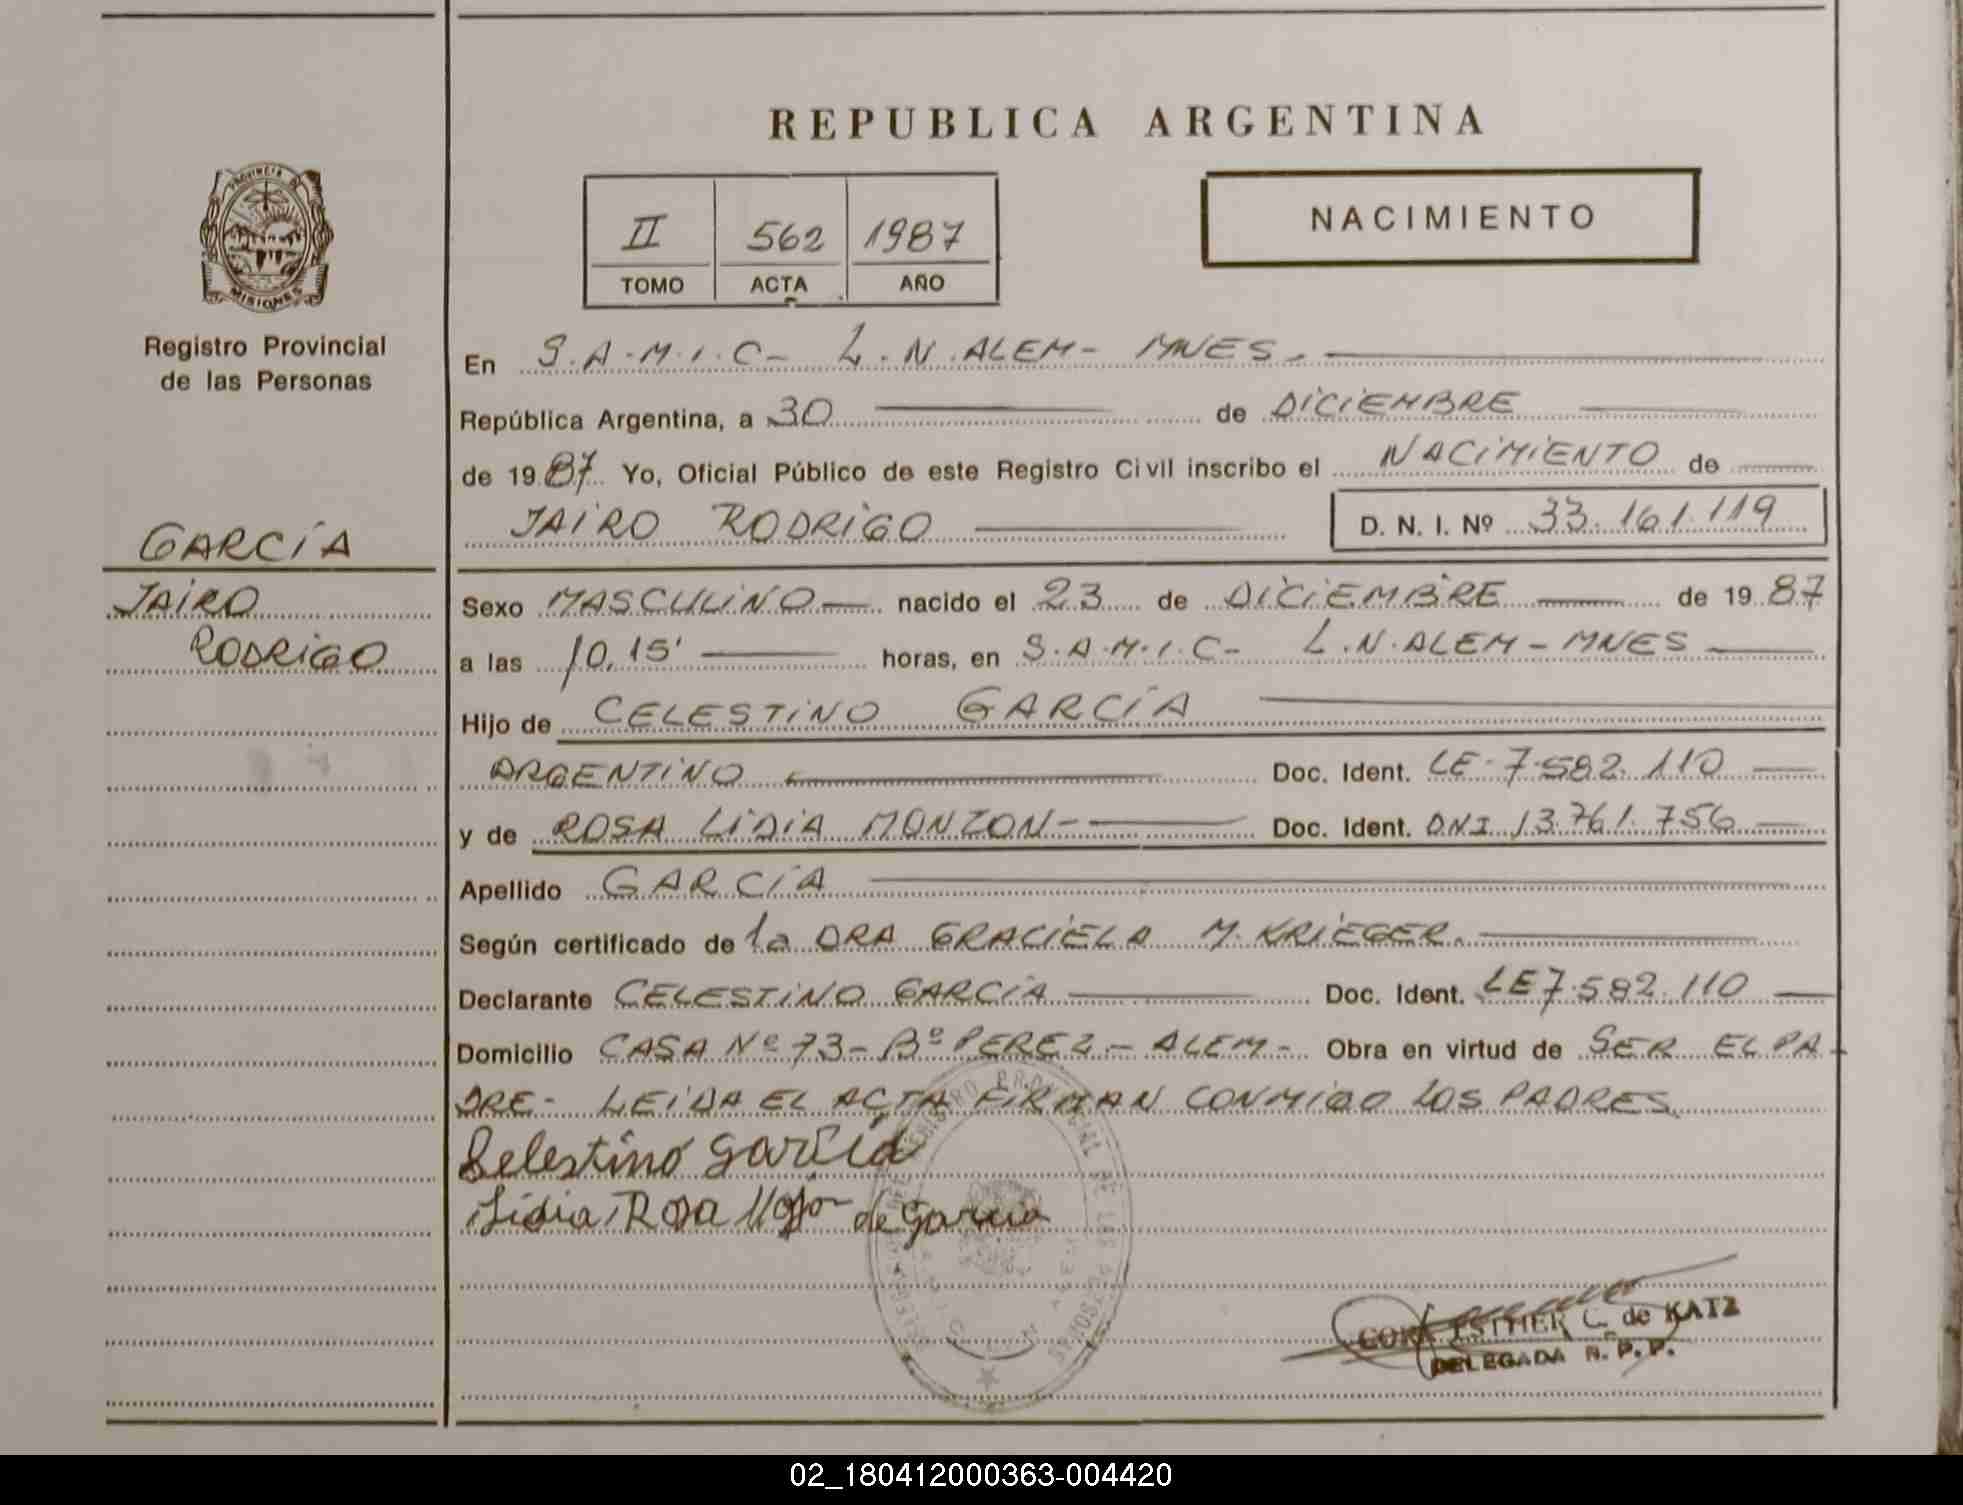 REPUBLICA ARGENTINA
PROVINCIA DE
MISIONES
Registro Provincial
de las Personas
II 562 1987
TOMO ACTA AÑO
NACIMIENTO
En S.A.M.I.C- L.N.ALEM- MNES.
República Argentina, a 30 de DICIEMBRE
de 1987. Yo, Oficial Público de este Registro Civil inscribo el NACIMIENTO de
JAIRO RODRIGO D. N. I. Nº 33.161.119
GARCÍA
JAIRO
RODRIGO
Sexo MASCULINO nacido el 23 de DICIEMBRE de 1987
a las 10,15' horas, en S.A.M.I.C- L.N.ALEM-MNES
Hijo de CELESTINO GARCÍA
ARGENTINO Doc. Ident. LE-7.582.110
y de ROSA LIDIA MONZON- Doc. Ident. DNI 13.761.756
Apellido GARCÍA
Según certificado de la DRA GRACIELA M. KRIEGER.
Declarante CELESTINO GARCÍA Doc. Ident. LE7.582.110
Domicilio CASA Nº 73-Bº PEREZ-ALEM- Obra en virtud de SER EL PA-
DRE- LEIDA EL ACTA FIRMAN CONMIGO LOS PADRES.
Selestino garcia
Lidia Rosa de garcia
REGISTRO PROVINCIAL DE LAS PERSONAS
ESTHER C. de KATZ
DELEGADA R. P. P.
02_180412000363-004420